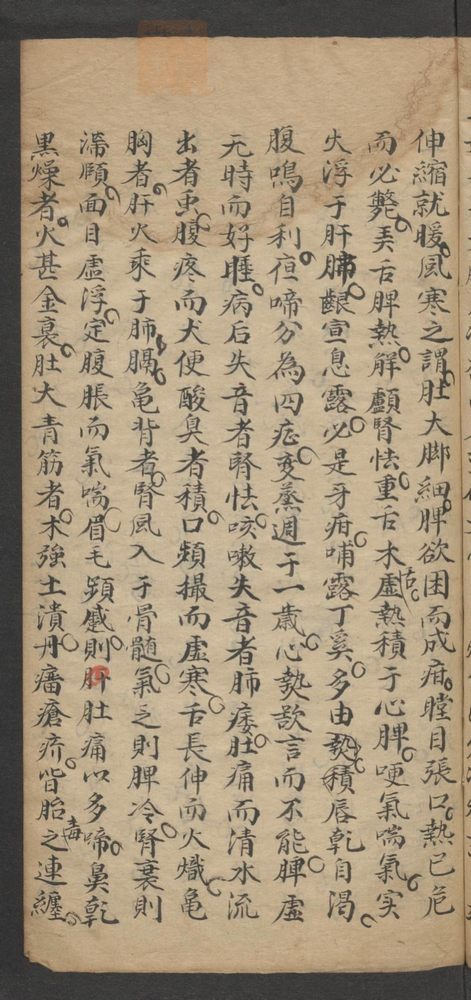 伸縮就暖風寒之謂肚大脚細脾欲困而成疳瞠目張口熱已危
而必斃弄舌脾熱解顱腎怯重舌木舌虛熱積于心脾哽氣喘氣实
火浮于肝肺齦宣息露必是牙疳哺露丁奚多由熱積唇乾自渴
腹鳴自利夜啼分為四症变蒸週于一歲心熱欲言而不能脾虛
无時而好睡病后失音者腎怯咳嗽失音者肺痿肚痛而清水流
出者虫腹疼而大便酸臭者積口頻撮而虛寒舌長伸而火熾龟
胸者肝火乘于肺膈龟背者腎風入于骨髓氣乏則脾冷腎衰則
滯頤面目虛浮定腹脹而氣喘眉毛頻蹙則肝肚痛以多啼鼻乾
黑燥者火甚金衰肚大青筋者木強土潰丹瘤瘡疥皆胎毒之連纏